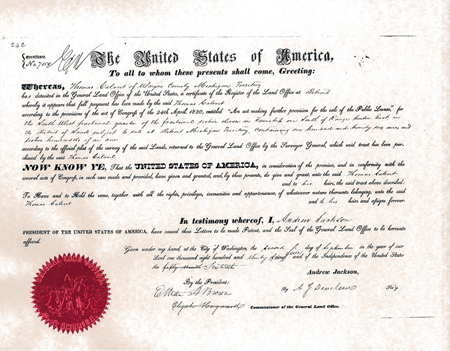 242
Certificate
The United States of America,
To all to whom these presents shall come, Greeting:
Whereas, Thomas Calnut of Wayne County Michigan Territory
has deposited in the General Land Office of the United States, a certificate of the Register of the Land Office at Detroit
whereby it appears that full payment has been made by the said Thomas Calnut
according to the provisions of the act of Congress of the 24th April, 1820, entitled "An act making further provision for the sale of the Public Lands," for
the South West fractional quarter of the fractional section eleven in Township one South of Range twelve East in
the District of Lands subject to sale at Detroit Michigan Territory, Containing one hundred and twenty one acres, and
according to the official plat of the survey of the said Lands, returned to the General Land Office by the Surveyor General, which said tract has been purchased by the said Thomas Calnut
NOW KNOW YE, That the UNITED STATES OF AMERICA, in consideration of the premises, and in conformity with the
several acts of Congress, in such case made and provided, have given and granted, and by these presents, do give and grant, unto the said Thomas Calnut
and to his heirs, the said tract above described:
To Have and to Hold the same, together with all the rights, privileges, immunities and appurtenances, of whatsoever nature thereunto belonging, unto the said
Thomas Calnut and to his heirs and assigns forever.
In testimony whereof, I, Andrew Jackson
PRESIDENT OF THE UNITED STATES OF AMERICA, have caused these Letters to be made Patent, and the Seal of the General Land Office to be hereunto
affixed.
Given under my hand, at the City of Washington, the second day of September in the year of our
Lord one thousand eight hundred and thirty and of the Independence of the United States
the fifty
Andrew Jackson,
By the President:
By A J Donelson Sec'y
Elijah Hayward Commissioner of the General Land Office.